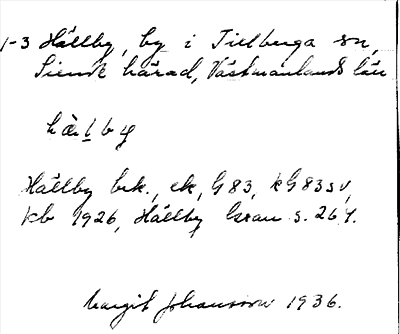 1-3 Hällby, by i Tillberga sn,
Siende härad, Västmanlands län
hä̀lby
Hällby bek., ek, G 83, kG 83 sv,
kb 1926, Hällby Gran s. 264.
Margit Johansson 1936.